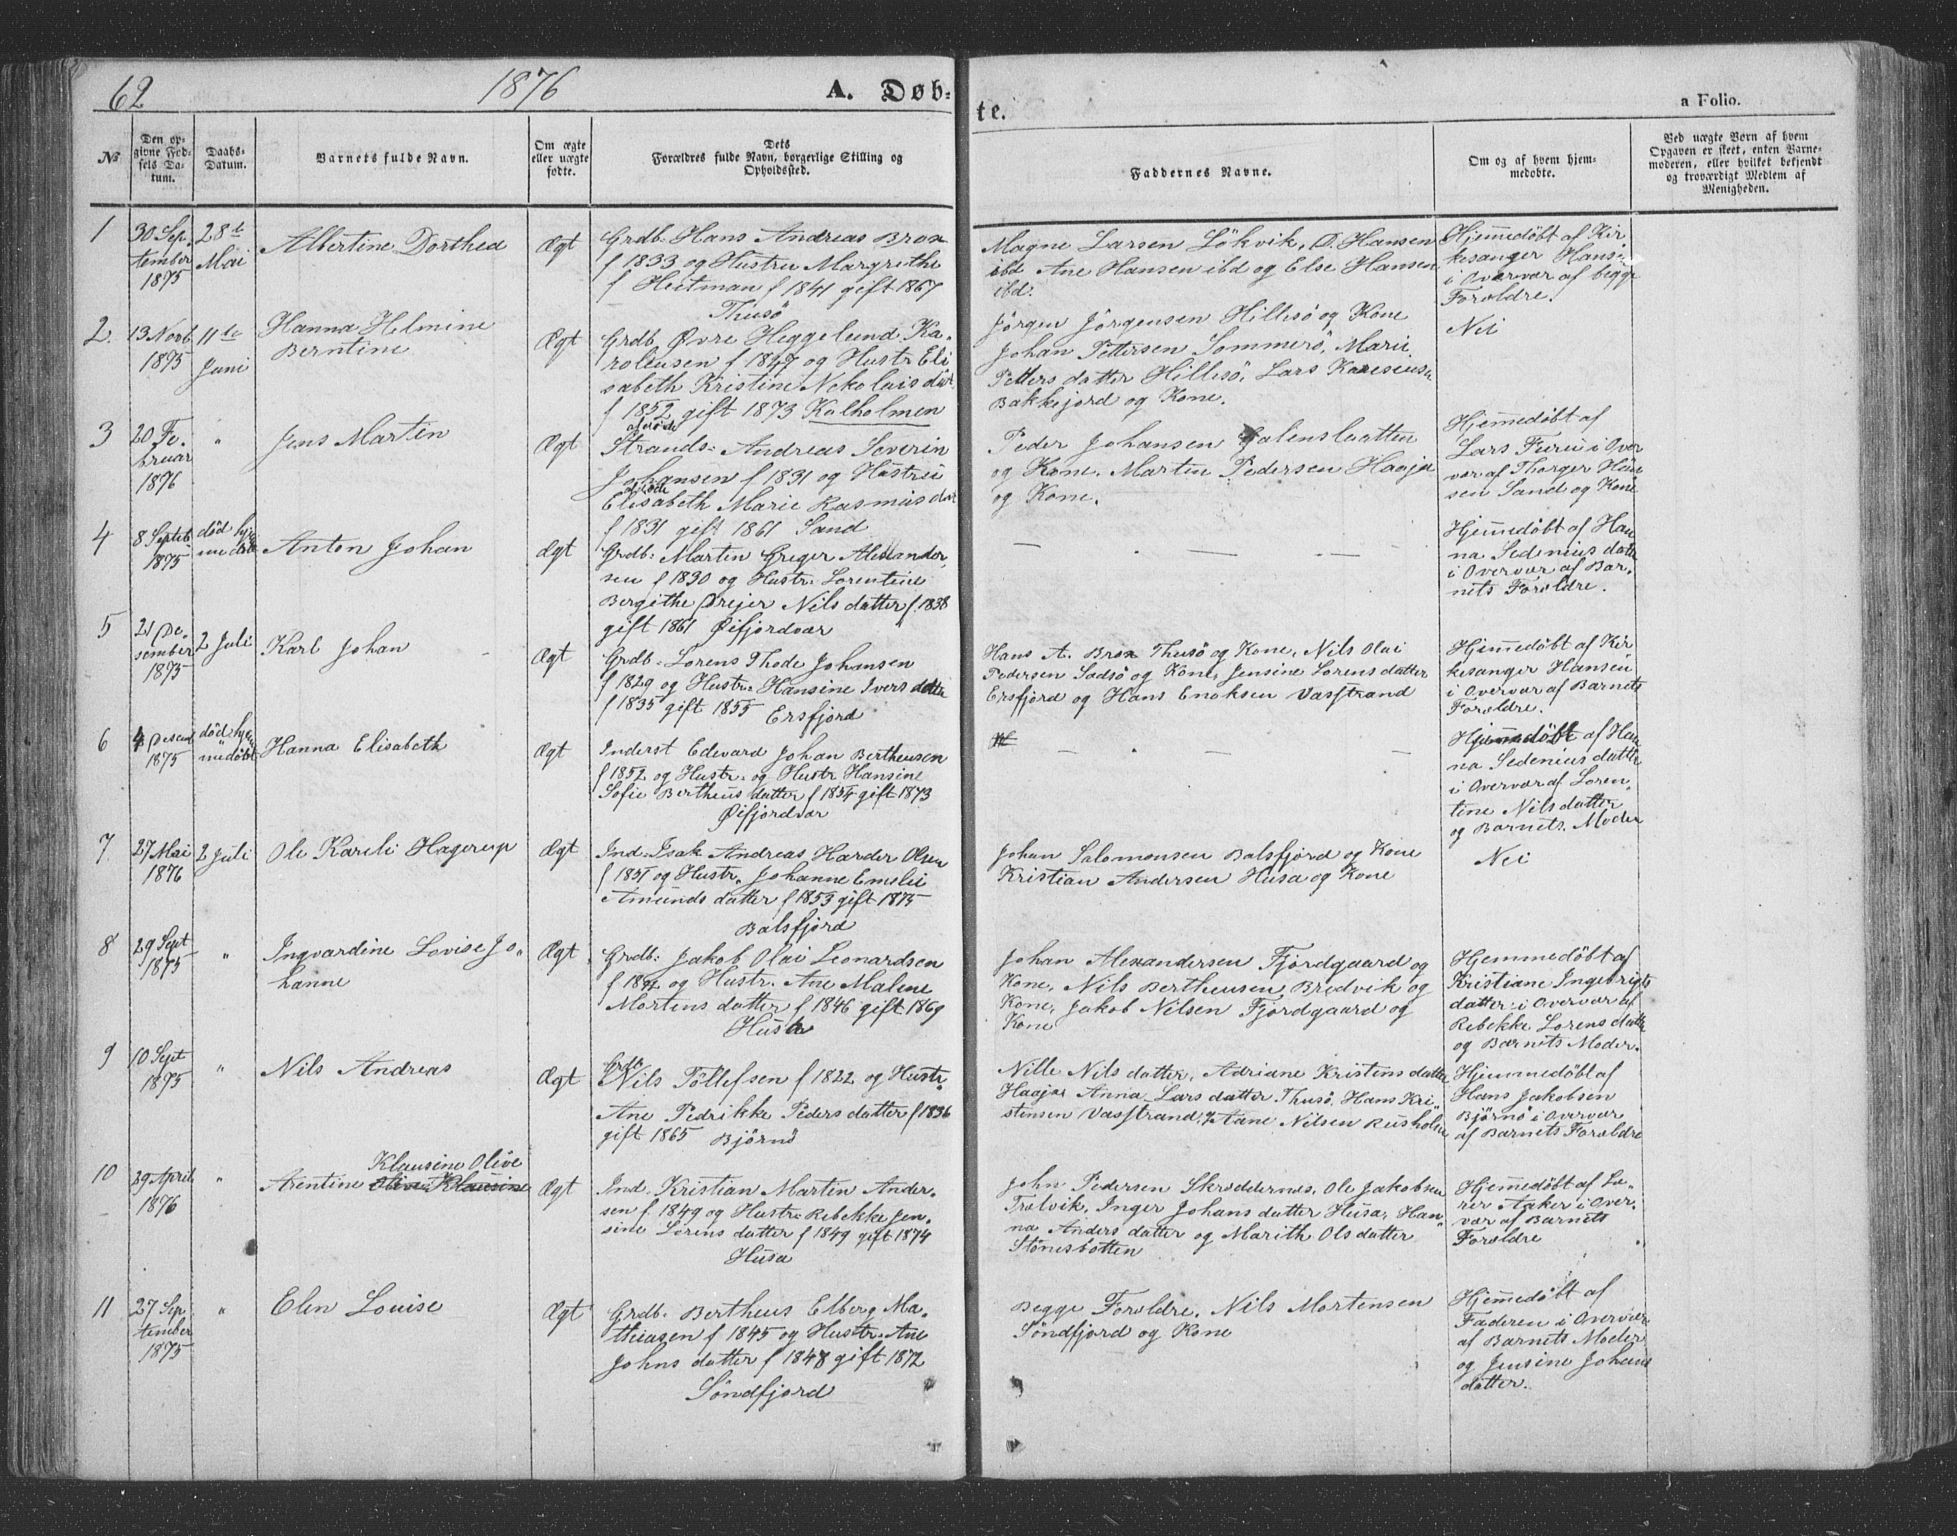 62 1876 A. Døb-
te.
a Folio.
No
Den op-
givne Fød-
sels Da-
tum.
Daabs-
Datum.
Barnets fulde Navn.
Om ægte
eller uægte
fødte.
Dets
Forældres fulde Navn, borgerlige Stilling og
Opholdssted.
Faddernes Navne.
Om og af hvem hjem-
medøbte.
Ved uægte Børn af hvem
Opgaven er skeet, enten Barne-
moderen, eller hvilket bekjendt
og troværdigt Medlem af
Menigheden.
1
30 Sep
tember
1875
28de
Mai
Albertine Dorthea
Ægt
Grdb. Hans Andreas Brox
f 1833 og Hustru Margrethe
f Heitman f 1841 gift 1867
Thusö
Magne Larsen Lökvik, D. Hansen
ibd Ane Hansen ibd og Else Hansen
ibd.
Hjemmedöbt af Kir
kesanger Hansen
i Overvær af begge
Forældre.
2.
13 Novb
1875
11te
Juni
Hanna Helmine
Berntine
Ægt
Grdb. Øvre Heggelund Ka-
roliusen f 1847 og Hustr Eli
sabeth Kristine Nekolais datt
f 1852 gift 1873 Kalholmen
Jörgen Jörgensen Hillesö og Kone
Johan Pettersen Sommerö, Marie
Petters datter Hillesö, Lars Karesiusn
Bakkejord og Kone.
Nei
3
20 Fe-
bruar
1876
"
Jens Martin
Ægt
afdöde
Strands: Andreas Severin
Johansen f 1831 og Hustru
afdöde
Elisabeth Marie Rasmus dat
f 1831 gift 1861 Sand
Peder Johansen Galenslaatten
og Kone. Martin Pedersen Haaja
og Kone.
Hjemmedöbt af
Lars Furu i Over
vær af Thorger Han
sen Sand og Kone
4
8 Septb
1875
död hje
me döbt
Anton Johan
Ægt
Grdb: Martin Greger Alexander,
sen f 1830 og Hustr. Lorentine
Bergithe Drejer Nils datter f 1838
gift 1861 Øifjordvær
Hjemmedöbt af Han
na Sedenius datte
i Overvær af Bar,
nets Forældre.
5
21 De-
sember
1875
2 Juli
Karl Johan
Ægt
Grdb. Lorens Thode Johansen
f 1829 og Hustr. Hansine Ivers datte
f 1835 gift 1855 Ersfjord
Hans A. Brox Thusö og Kone, Nils Olai
Pedersen Sadsö og Kone, Jensine Lorens datter
Ersfjord og Hans Enoksen Vasstrand
Hjemmedöbt af Kir
kesanger Hansen
i Overvær af Barnets
Forældre.
6
4 Desem
1875
död hje
medöbt
Hanna Elisabeth
Ægt
Inderst Edevard Johan Bertheusen
f 1852 og Hustr. og Hustr Hansine
Sofie Bertheus datter f 1854 gift 1873
Øifjordvær
Hjemmedöbt af Han
na Sedenius datte
i Overvær af Loren,
tine Nils datter
og Barnets Moder
7
27 Mai
1876
2 Juli
Ole Kareli Hagerup
Ægt
Ind. Isak Andreas Harder Olsen
f 1851 og Hustr. Johanne Emelie
Amunds datter f 1853 gift 1875
Balsfjord
Johan Salomonsen Balsfjord og Kone
Kristian Andersen Husa og Kone
Nei
8
29 Sept
1875
"
Ingvardine Lovise Jo,
hanne
Ægt
Grdb: Jakob Olai Leonardsen
f 1842 og Hustr. Ane Malene
Mortens datter f 1846 gift 1869
Husa
Johan Alexandersen Fjordgaard og
Kone, Nils Bertheusen Bredvik og
Kone, Jakob Nilsen Fjordgaard og
Kone
Hjemmedöbt af
Kristiane Ingebrigts
datter i Overvær af
Rebekke Lorens datte
og Barnets Moder.
9
10 Sept
1875
"
Nils Andreas
Ægt
Grdb
Nils Töllefsen f 1822 og Hustr.
Ane Pedrikke Peders datter f 1836
gift 1865 Björnö
Nille Nils datter, Adriane Kristens datte
Haaja Anna Lars datter Thusö, Hans Kri
stensen Vasstrand, Aane Nilsen Rusholm
Hjemmedöbt af
Hans Jakobsen
Björnö i Overvær
af Barnets Forældre
10
29 April
1876
"
Klausine Olive
Arentine Olive Klausine
Ægt
Ind. Kristian Martin Ander-
sen f 1849 og Hustr. Rebekke Jen,
sine Lorens datter f 1849 gift 1874
Husa
John Pedersen Skrödderness, Ole Jakobsen
Trælvik, Inger Johans datter Husa, Han
na Anders datter og Marith Ols datter
Stönisbotten
Hjemmedöbt af Læ-
rer Aaker i Over-
vær af Barnets
Forældre
11
27 Sep
tember
1875
"
Elen Louise
Ægt
Grdb: Bertheus Elberg Ma-
theasen f 1845 og Hustr. Ane
Johns datter f 1848 gift 1872
Söndfjord
Begge Forældre, Nils Mortensen
Söndfjord og Kone
Hjemmedöbt af
Faderen i Overvær
af Barnets Moder
og Jensine Johans
datter.